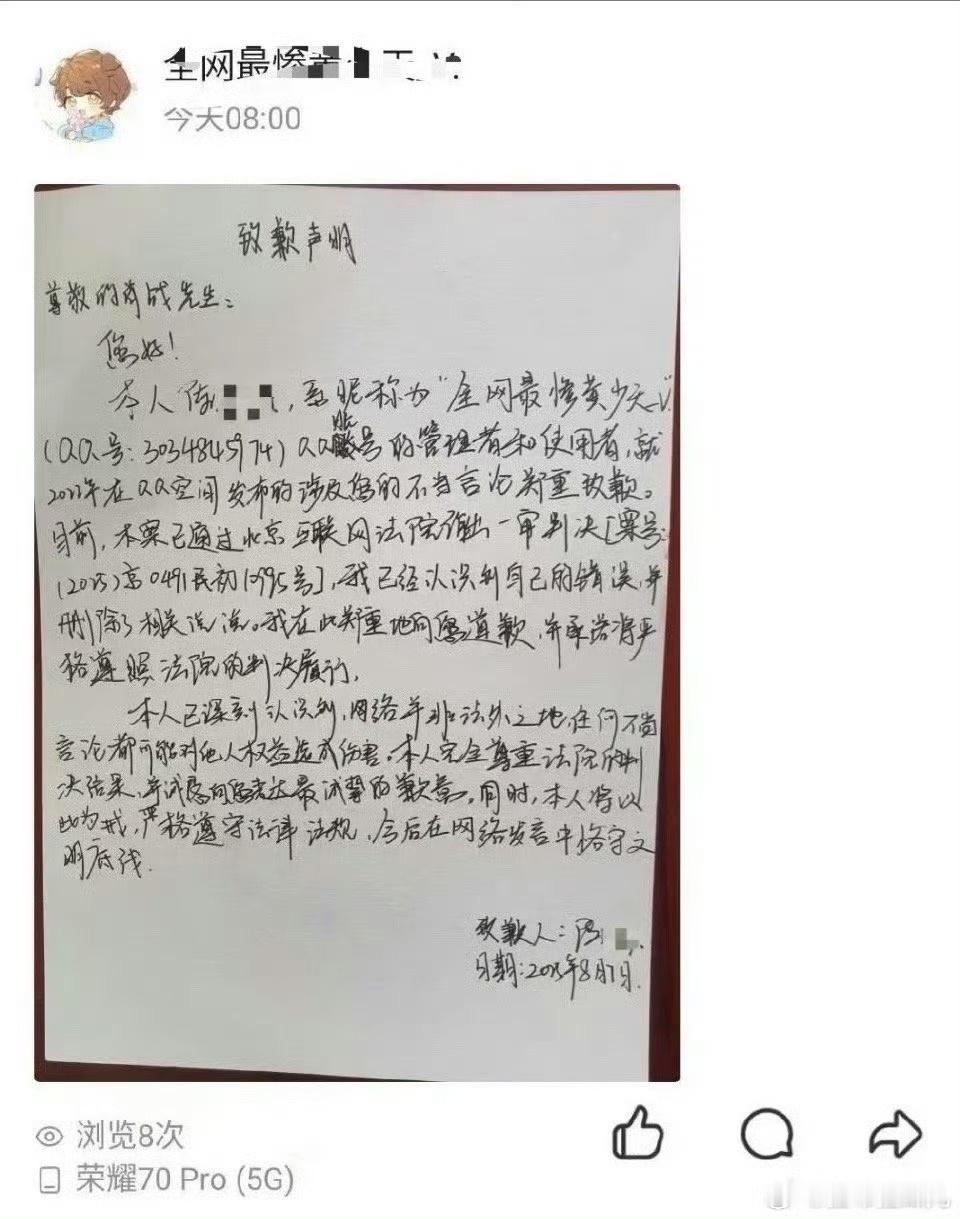 全网最惨
今天08:00
致歉声明
尊敬的肖战先生:
您好!
本人陈，系昵称为“全网最惨黄少天~V”
(QQ号:3034845974)QQ账号的管理者和使用者,就
在QQ空间发布的涉及您的不当言论郑重致歉。
目前,本案已通过北京互联网法院作出一审判决[案号:
(2025)京0491民初号],我已经认识到自己的错误,并
删除了相关说说。我在此郑重地向您道歉,并承诺将严
格遵照法院的判决履行。
本人已深刻认识到,网络并非法外之地,任何不当
言论都可能对他人权益造成伤害。本人完全尊重法院的判
决结果,并诚恳向您表达最诚挚的歉意。同时,本人将以
此为戒,严格遵守法律法规,今后在网络发言中恪守文
明底线.
致歉人:
日期:2025年8月7日.
浏览8次
荣耀70 Pro (5G)